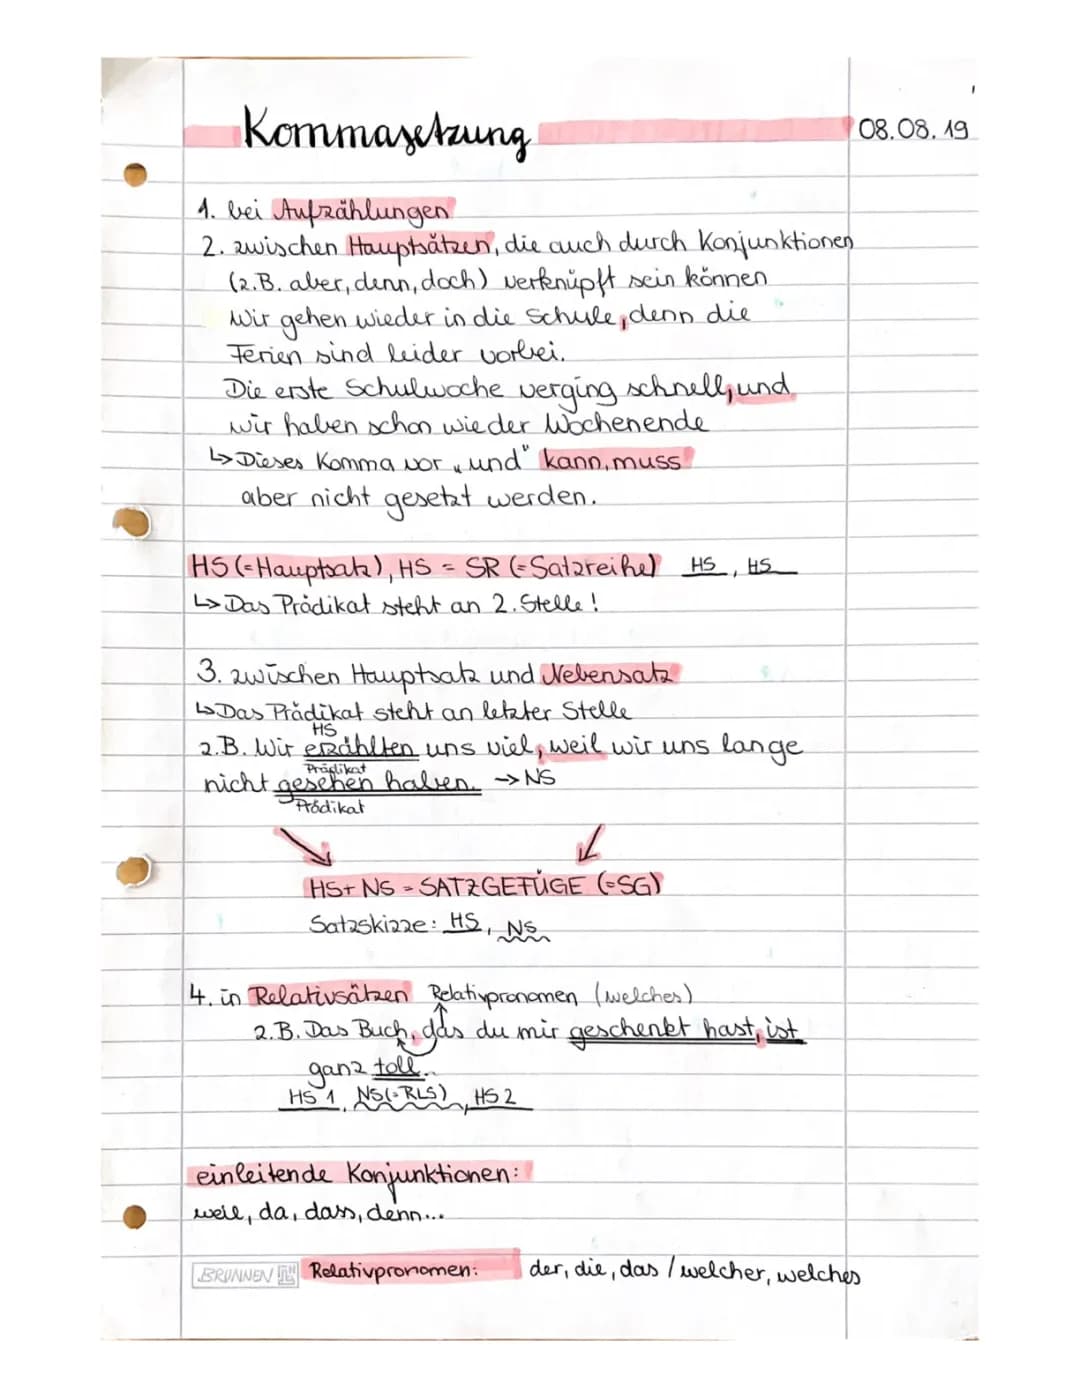 Kommasetzung
08.08.19
1. bei Aufzählungen
2. zwischen Hauptsätzen, die auch durch Konjunktionen
(z.B. aber, denn, doch) verknüpft sein können
Wir gehen wieder in die Schule, denn die
Ferien sind leider vorbei.
Die erste Schulwoche verging schnell, und
wir haben schon wieder Wochenende
↳ Dieses Komma vor „und" kann, muss
aber nicht gesetzt werden.
HS (=Hauptsatz), HS = SR (=Satzreihe) HS, HS
↳ Das Prädikat steht an 2. Stelle!
3. zwischen Hauptsatz und Nebensatz
↳ Das Prädikat steht an letzter Stelle
HS
z.B. Wir erzählten uns viel, weil wir uns lange
Prädikat
nicht gesehen haben. → NS
Prädikat
HS+ NS = SATZGEFÜGE (=SG)
Satzskizze: HS, NS
4. in Relativsätzen Relativpronomen (welches)
z.B. Das Buch, das du mir geschenkt hast, ist
ganz toll.
HS 1, NS(=RLS), HS 2
einleitende Konjunktionen:
weil, da, dass, denn...
BRUNNEN Relativpronomen: der, die, das / welcher, welches